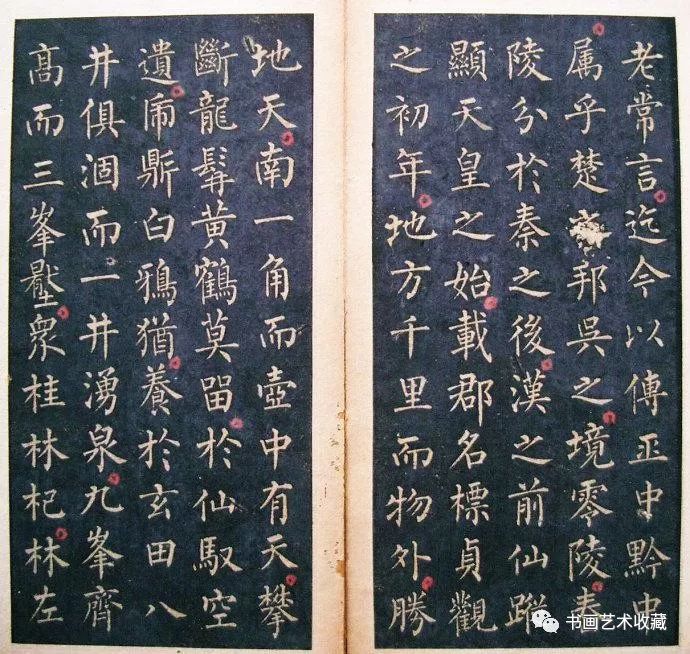 老常言迄今以傳巫中黔中
属乎楚之邦吳之境零陵舂
陵分於秦之後漢之前仙蹤
顯天皇之始載郡名標貞觀
之初年地方千里而物外勝
地天南一角而壺中有天攀
斷龍髯黃鶴莫畱於仙馭空
遺鬲鼎白鴉猶養於玄田八
井俱涸而一井湧泉九峯齊
髙而三峯壓衆桂林杞林左
书画艺术收藏